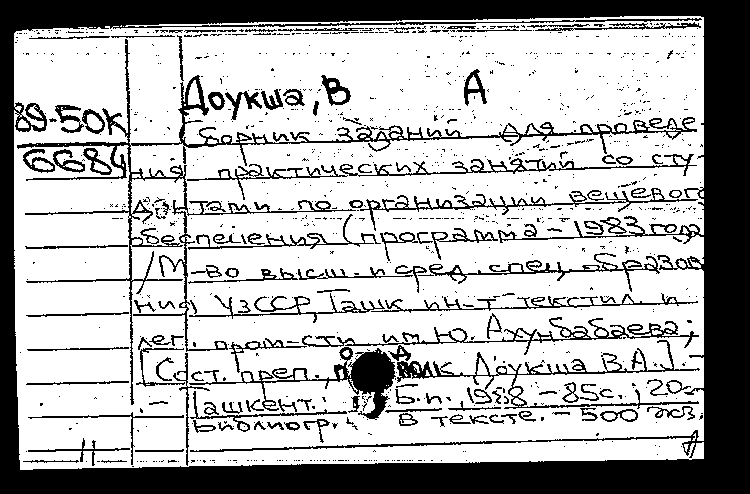 Доукша, В А
89-50К
6684
Сборник заданий для проведе-
ния практических занятий со сту-
дентами по организации вещевого
обеспечения (программа - 1983 года
/М-во высш. и сред. спец. образова
ния УзССР, Ташк. ин-т текстил. и
лег. пром-сти им. Ю. Ахунбабаева;
[Сост. преп., п волк. Доукша В.А.]. -
.- Ташкент.: Б.и., 1988 - 85с.; 20см
Библиогр. в тексте. - 500 экз.
11